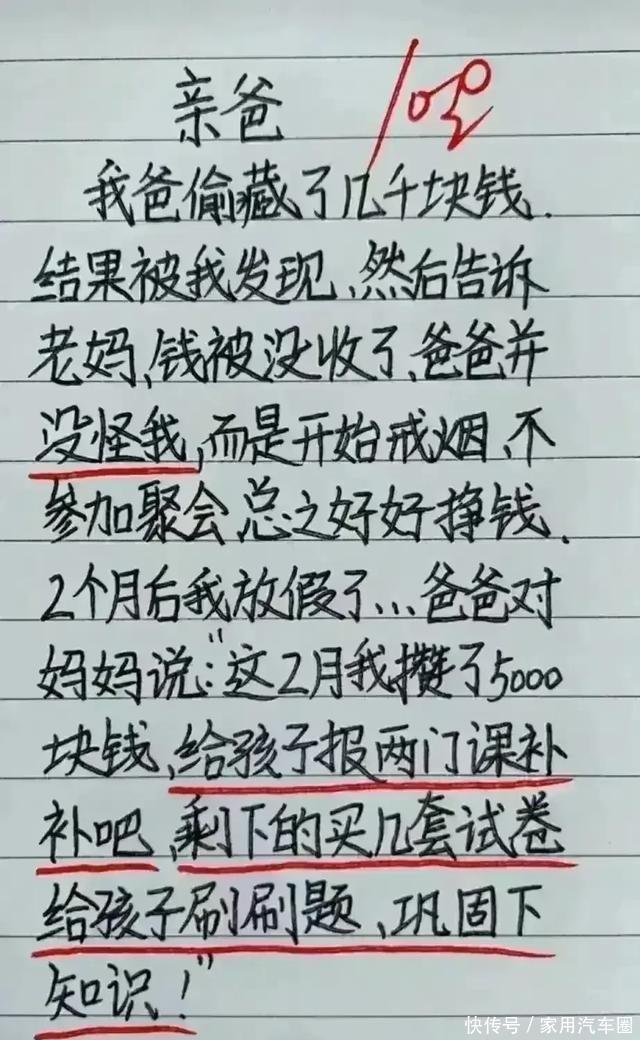 亲爸
我爸偷藏了几千块钱.
结果被我发现、然后告诉
老妈、钱被没收了、爸爸并
没怪我、而是开始戒烟、不
参加聚会、总之好好挣钱.
2个月后我放假了...爸爸对
妈妈说:"这2月我攒了5000
块钱、给孩子报两门课补
补吧、剩下的买几套试卷
给孩子刷刷题、巩固下
知识!"
快传号/家用汽车圈